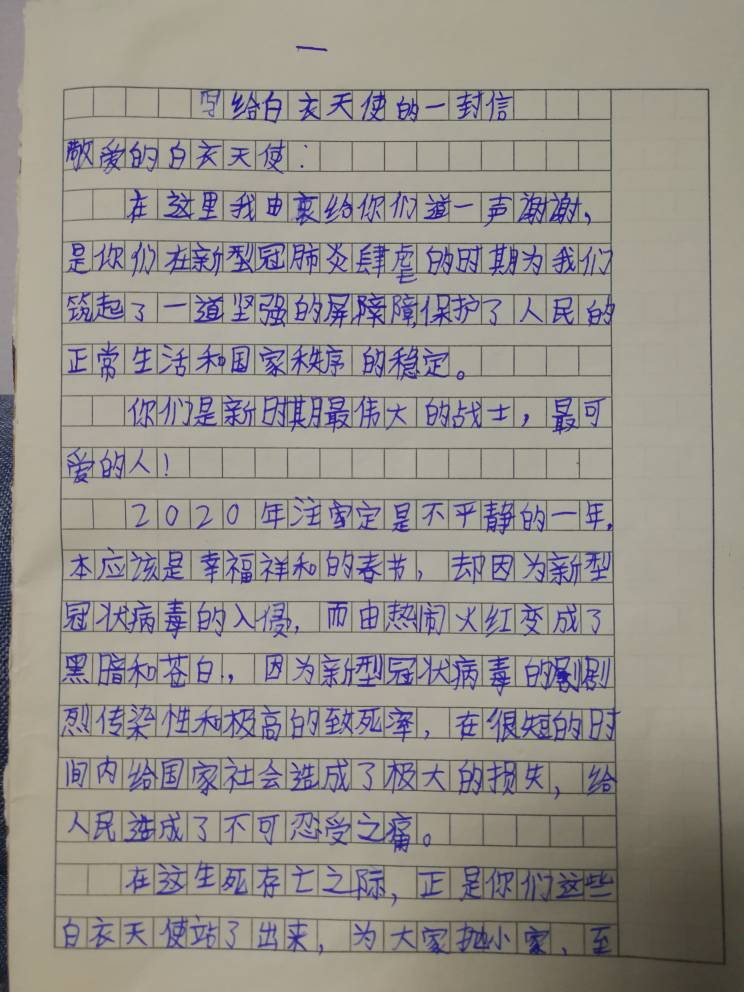 一
写给白衣天使的一封信
敬爱的白衣天使：
在这里我由衷给你们道一声谢谢，
是你们在新型冠肺炎肆虐的时期为我们
筑起了一道坚强的屏障,保护了人民的
正常生活和国家秩序的稳定。
你们是新时期最伟大的战士，最可
爱的人！
2020年注定是不平静的一年，
本应该是幸福祥和的春节，却因为新型
冠状病毒的入侵，而由热闹火红变成了
黑暗和苍白.，因为新型冠状病毒的剧
烈传染性和极高的致死率，在很短的时
间内给国家社会造成了极大的损失，给
人民造成了不可忍受之痛。
在这生死存亡之际，正是你们这些
白衣天使站了出来，为大家抛小家，至